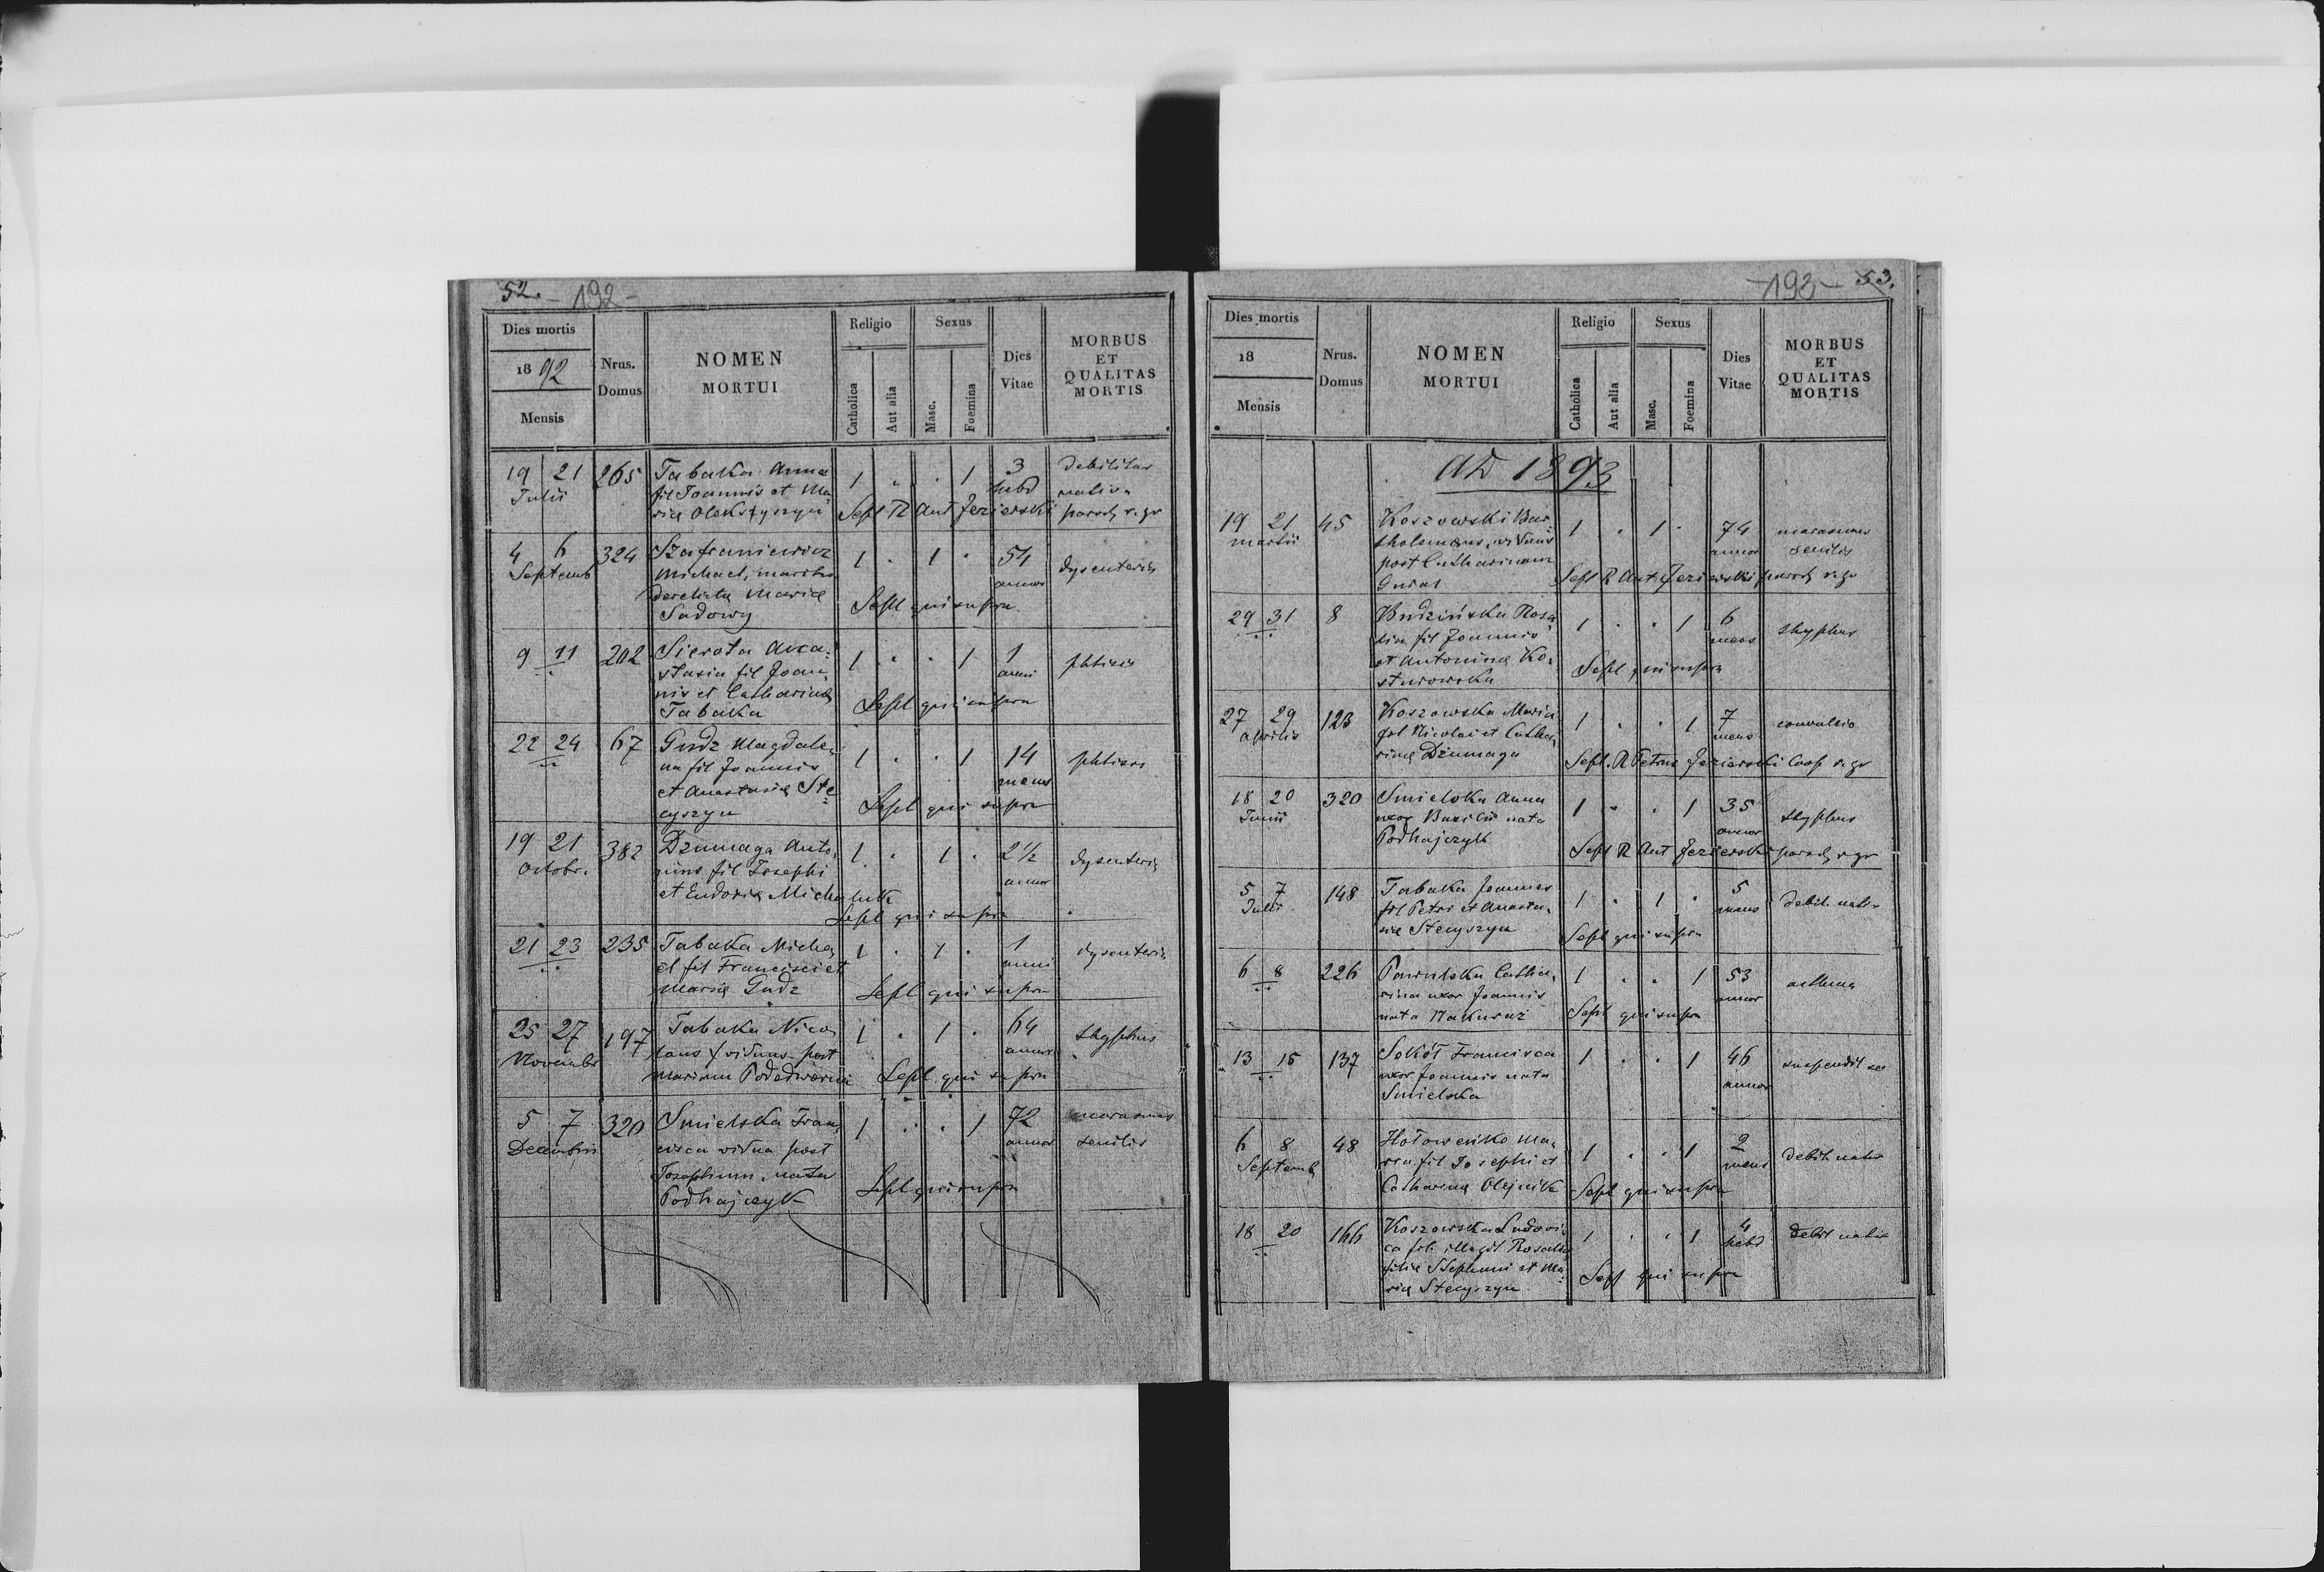 52. - 192 -
Dies mortis
1892
Mensis
Nrus.
Domus
NOMEN
MORTUI
Religio
Catholica
Aut alia
Sexus
Masc.
Foemina
Dies
Vitae
MORBUS
ET
QUALITAS
MORTIS
19 21 265 Tabaka Anna 1 . . 1 3 debilitas
Julii fil Joannis et Ma= hebd nativa
riae Sepl R Ant Jezierski paroch r. gr
4 6 324 Szafraniewicz 1 . 1 . 54 dysenteria
Septemb Michael, maritus annor
derelicta Maria
Sadowy Sepl qui supra
9 11 202 Sierota Ana= 1 . . 1 1 phtisis
stasia fil Joan= anni
nis et Catharina
Tabaka Sepl qui supra
22 24 67 Gudz Magdale= 1 . . 1 14 phtisis
na fil Joannis mens
et Anastasia Ste=
cyszyn Sepl qui supra
19 21 382 Dzumaga Anto= 1 . 1 . 2 1/2 dysenteria
Octobr. nius fil Josephi annor
et Eudoxia Michaluk
Sepl qui supra
21 23 235 Tabaka Micha= 1 . 1 . 1 dysenteria
el fil Francisci et anni
Maria Gudz Sepl qui supra
25 27 197 Tabaka Nico= 1 . 1 . 64 thyphus
Novembr laus viduus post annor
Mariam Sepl qui supra
5 7 320 Smielska Fran= 1 . . 1 72 marasmus
Decembris cisca vidua post annor senilis
Josephum, nata
Podhajczyk Sepl qui supra
- 193 - 53.
Dies mortis
18
Mensis
Nrus.
Domus
NOMEN
MORTUI
Religio
Catholica
Aut alia
Sexus
Masc.
Foemina
Dies
Vitae
MORBUS
ET
QUALITAS
MORTIS
AD 1893
19 21 45 Koszowski Bar= 1 . 1 . 74 marasmus
Martii tholomeus, viduus annor senilis
post Catharinam
Gural Sepl R Ant Jezierski paroch r. gr
29 31 8 Budzińska Rosa= 1 . . 1 6 thyphus
lia fil Joannis mens
et Antonina Ko=
sturowska Sepl qui supra
27 29 123 Koszowska Maria 1 . . 1 7 convulsio
Aprilis fil Nicolai et Catha= mens
rina Dzumaga Sepl. R Petrus Jezierski Coop r. gr
18 20 320 Smielska Anna 1 . . 1 35 thyphus
Junii uxor Basilii nata annor
Podhajczyk Sepl R Ant Jezierski paroch r. gr
5 7 148 Tabaka Joannes 1 . 1 . 5 debil. nativ
Julii fil Petri et Anasta= mens
sia Stecyszyn Sepl qui supra
6 8 226 Catha= 1 . . 1 53 asthma
rina uxor Joannis annor
nata Sepl qui supra
13 15 137 Sokół Francisca 1 . . 1 46 suspendit se
uxor Joannis nata annor
Smielska
6 8 48 Hołowenko Ma= 1 . . 1 2 debil nativ
Septemb ria fil Josephi et mens
Catharina Olejnik Sepl qui supra
18 20 166 Koszowska Ludovi= 1 . . 1 4 debil nativ
ca fil. illegit Rosalia hebd
filia Stephani et Ma=
ria Stecyszyn Sepl qui supra